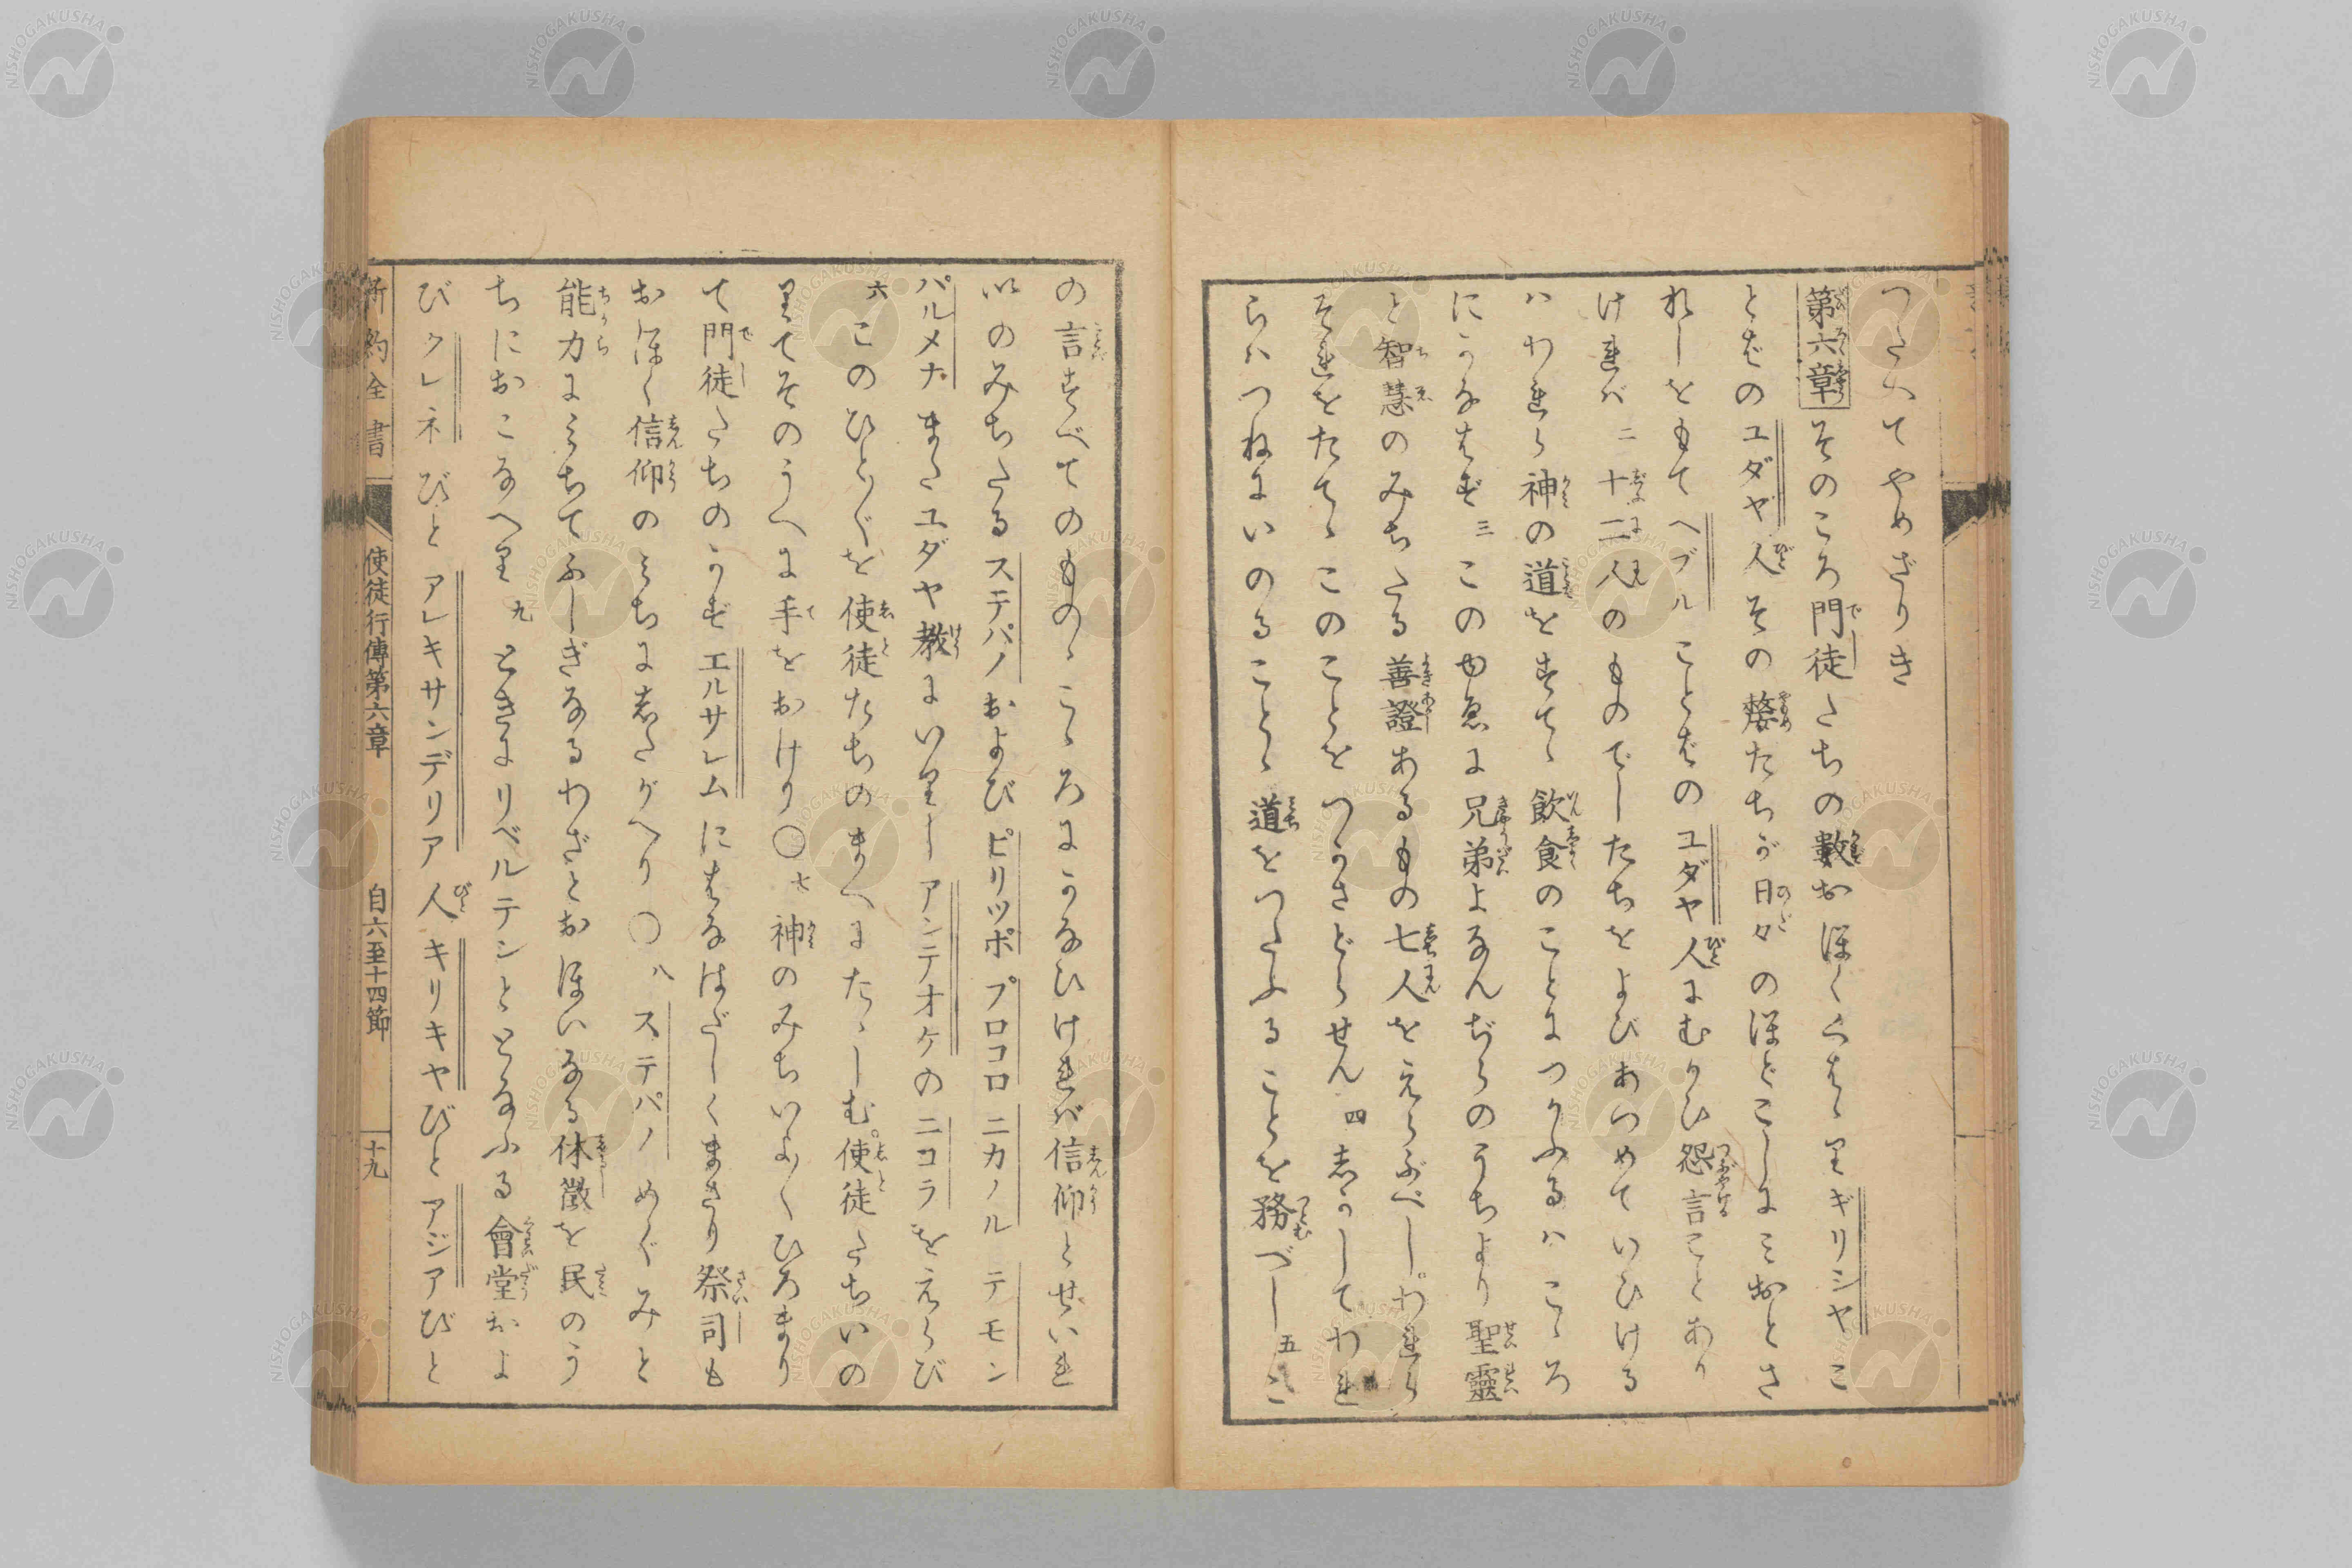 つたへてやめざりき
第六章 そのころ門徒たちの數おほくくはゝりギリシヤこ
とばのユダヤ人その嫠たちが日々のほどこしにミおとさ
れしをもてヘブルことばのユダヤ人にむかひ怨言ことあり
ければ 二 十二人のものでしたちをよびあつめていひける
ハわれら神の道をすてゝ飲食のことにつかふるハこゝろ
にかなはず 三 このゆゑに兄弟よなんぢらのうちより聖靈
と智慧のみちたる善證あるもの七人をえらぶべしわれら
それをたてゝこのことをつかさどらせん 四 志かしてわれ
らハつねにいのることゝ道をつたふることを務べし 五 こ
の言すべてのものゝこゝろにかなひければ信仰とせいれ
いのみちたるステパノおよびピリツポプロコロニカノルテモン
パルメナまたユダヤ教にいりしアンテオケのニコラをえらび
六 このひとゞを使徒たちのまへにたゝしむ使徒たちいの
りてそのうへに手をおけり〇 七 神のみちいよゝひろまり
て門徒たちのかずエルサレムにはなはだしくまさり祭司も
おほく信仰のミちに志たがへり〇 八 ステパノめぐみと
能力にミちてふしぎなるわざとおほいなる休徴を民のう
ちにおこなへり 九 ときにリベルテンとゝとなふる會堂およ
びクレネびとアレキサンデリア人キリキヤびとアジアびと
新約全書 使徒行傳第六章 自六至十四節 十九